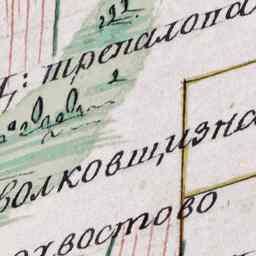 Ц: трепалопа
волковщизна
охвостово